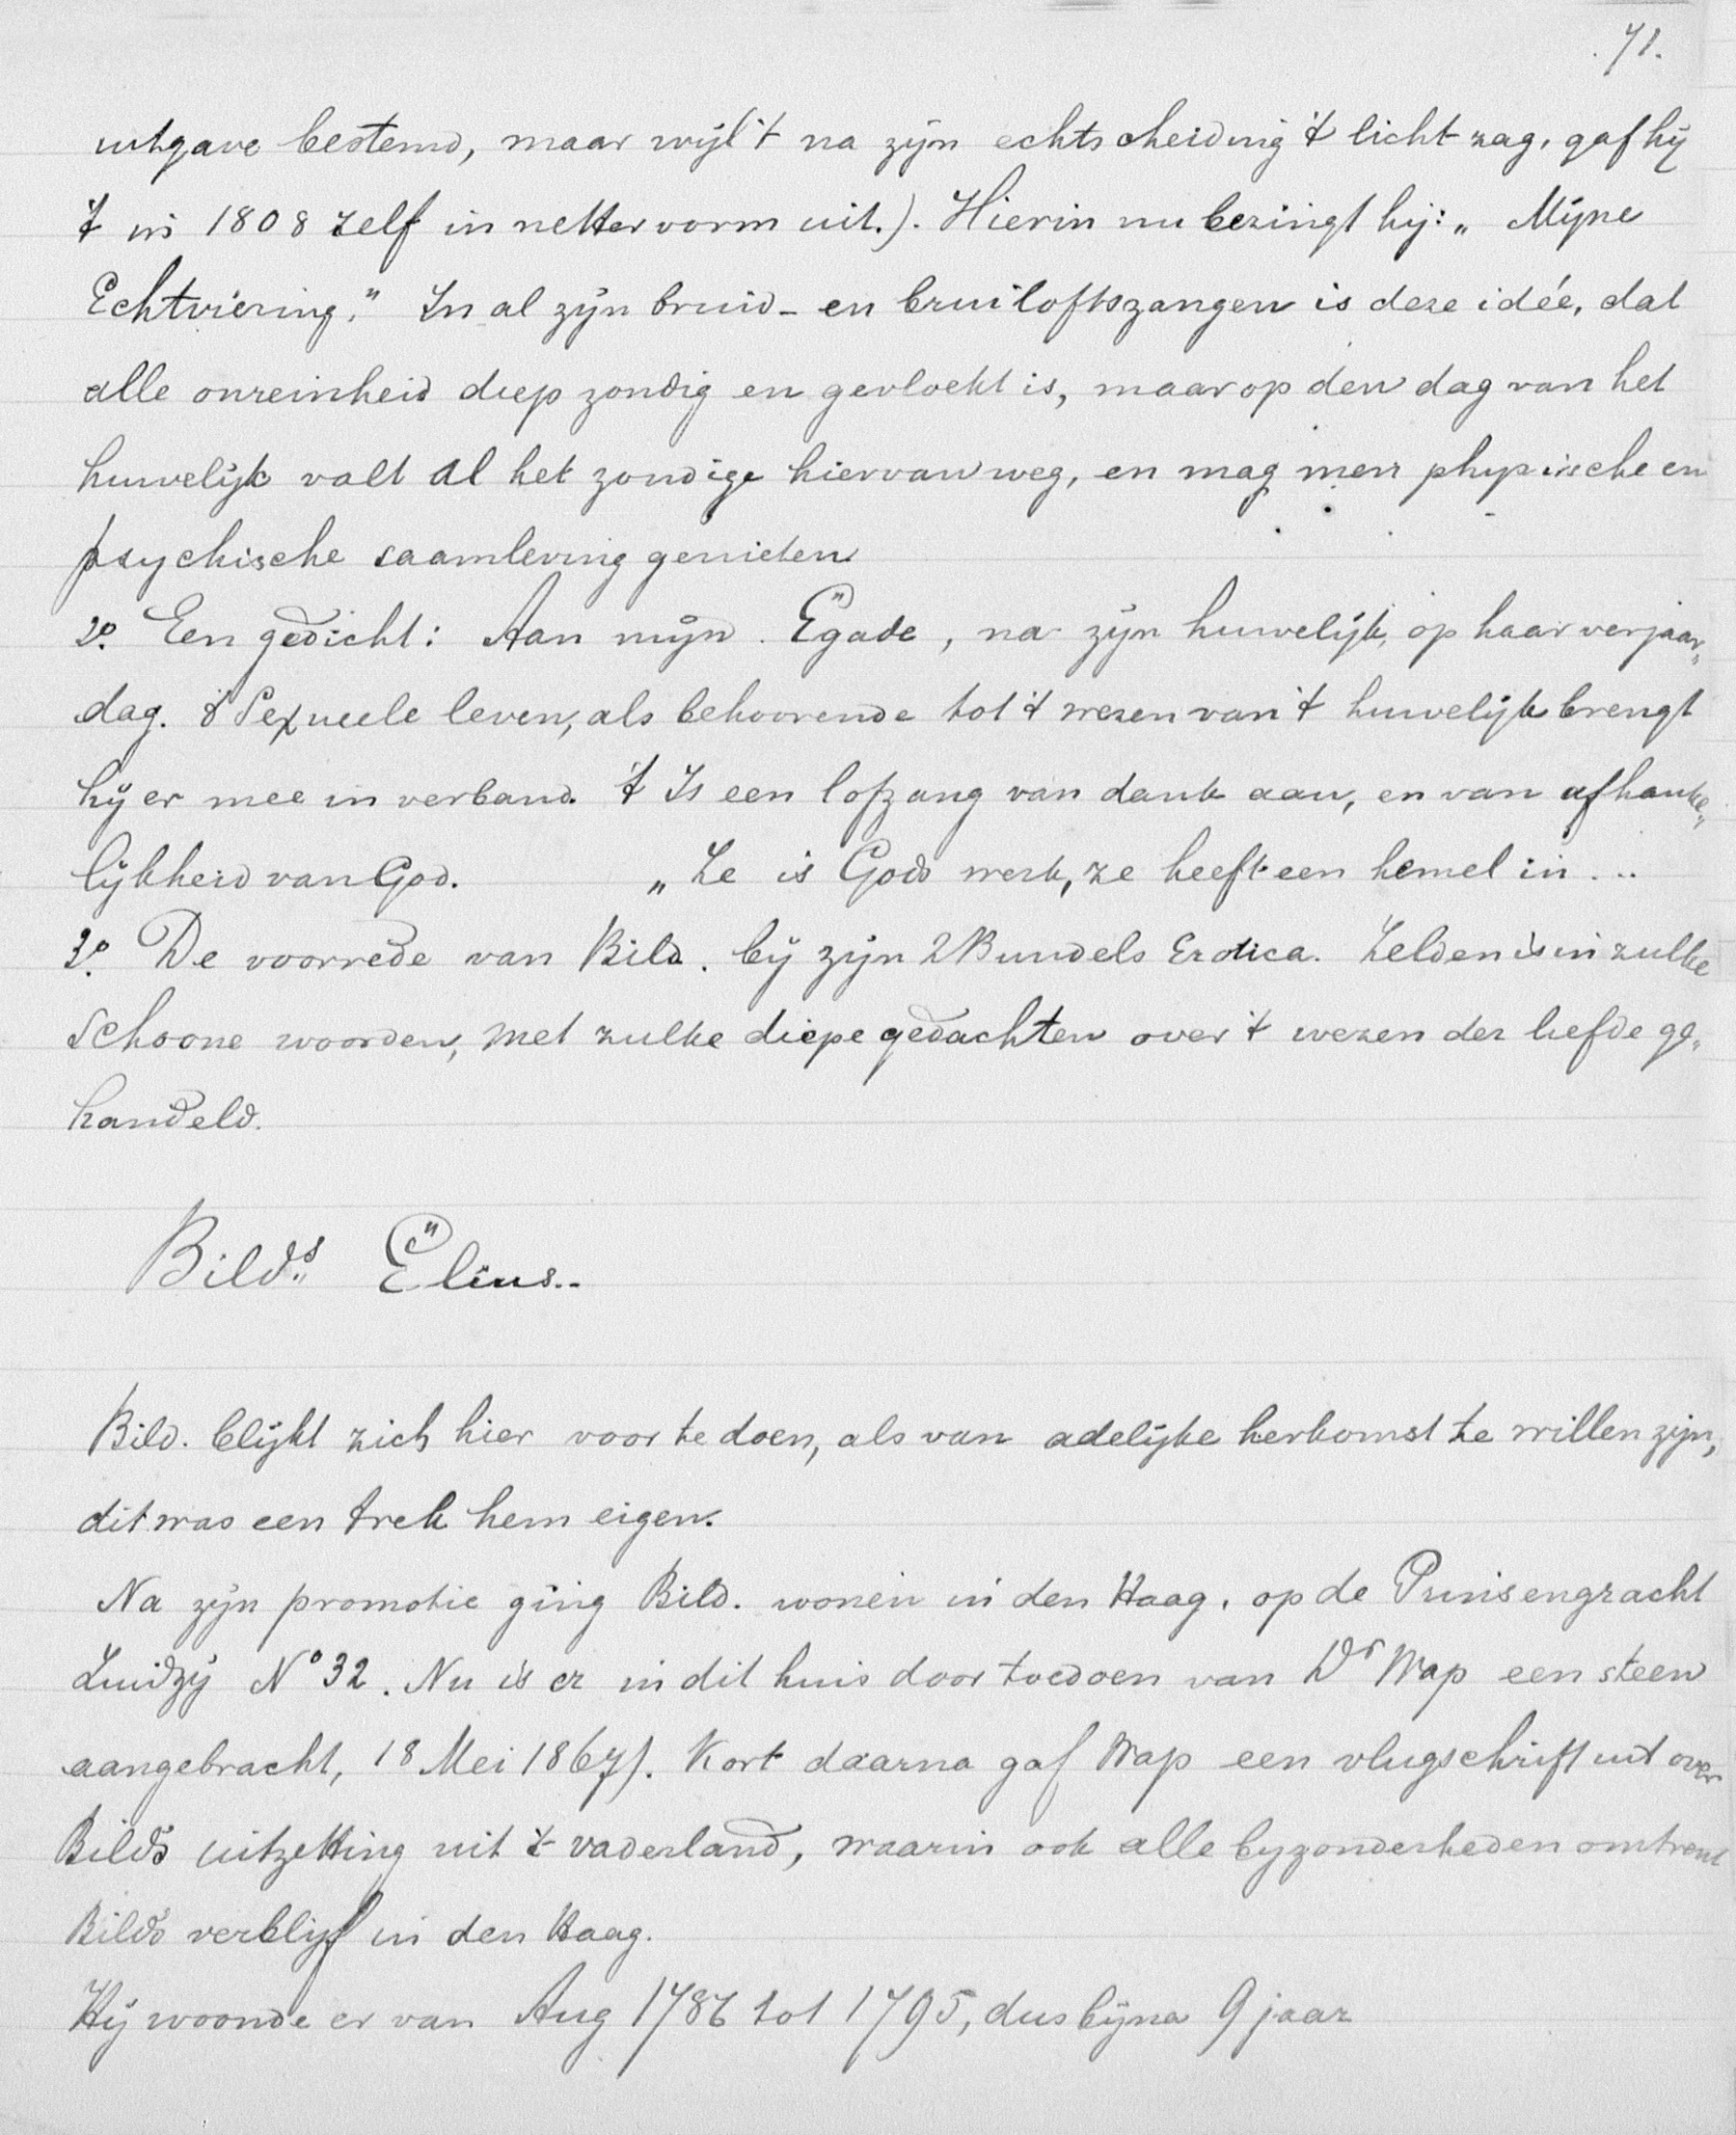 71.
uitgave bestemd, maar wijl 't na zijn echtscheiding 't licht zag, gaf hij
't in 1808 zelf in netter vorm uit.). Hierin nu bezingt hij: „Mijne
Echtviering." In al zijn bruid- en bruiloftszangen is deze idée, dat
alle onreinheid diep zondig en gevloekt is, maar op den dag van het
huwelijk valt al het zondige hiervan weg, en mag men physische en
psychische saamleving genieten
2o. Een gedicht: Aan mijn Egade, na zijn huwelijk, op haar verjaar„
dag. 't Sexueele leven, als behoorende tot 't wezen van 't huwelijk brengt
hij er mee in verband. 't Is een lofzang van dank aan, en van afhanke„
lijkheid van God. „Ze is Gods werk, ze heeft een hemel in...
3o. De voorrede van Bild. bij zijn 2 Bundels Erotica. Zelden is in zulke
schoone woorden, met zulke diepe gedachten over 't wezen der liefde ge„
handeld.
Bild's Elius..
Bild. blijkt zich hier voor te doen, als van adelijke herkomst te willen zijn,
dit was een trek hem eigen.
Na zijn promotie ging Bild. wonen in den Haag, op de Prinsengracht
Zuidzij No 32. Nu is er in dit huis door toedoen van Dr Wap een steen
aangebracht, 18 Mei 1867). Kort daarna gaf Wap een vlugschrift uit over
Bild's uitzetting uit 't vaderland, waarin ook alle byzonderheden omtrent
Bild's verblijf in den Haag.
Hij woonde er van Aug 1786 tot 1795, dus bijna 9 jaar